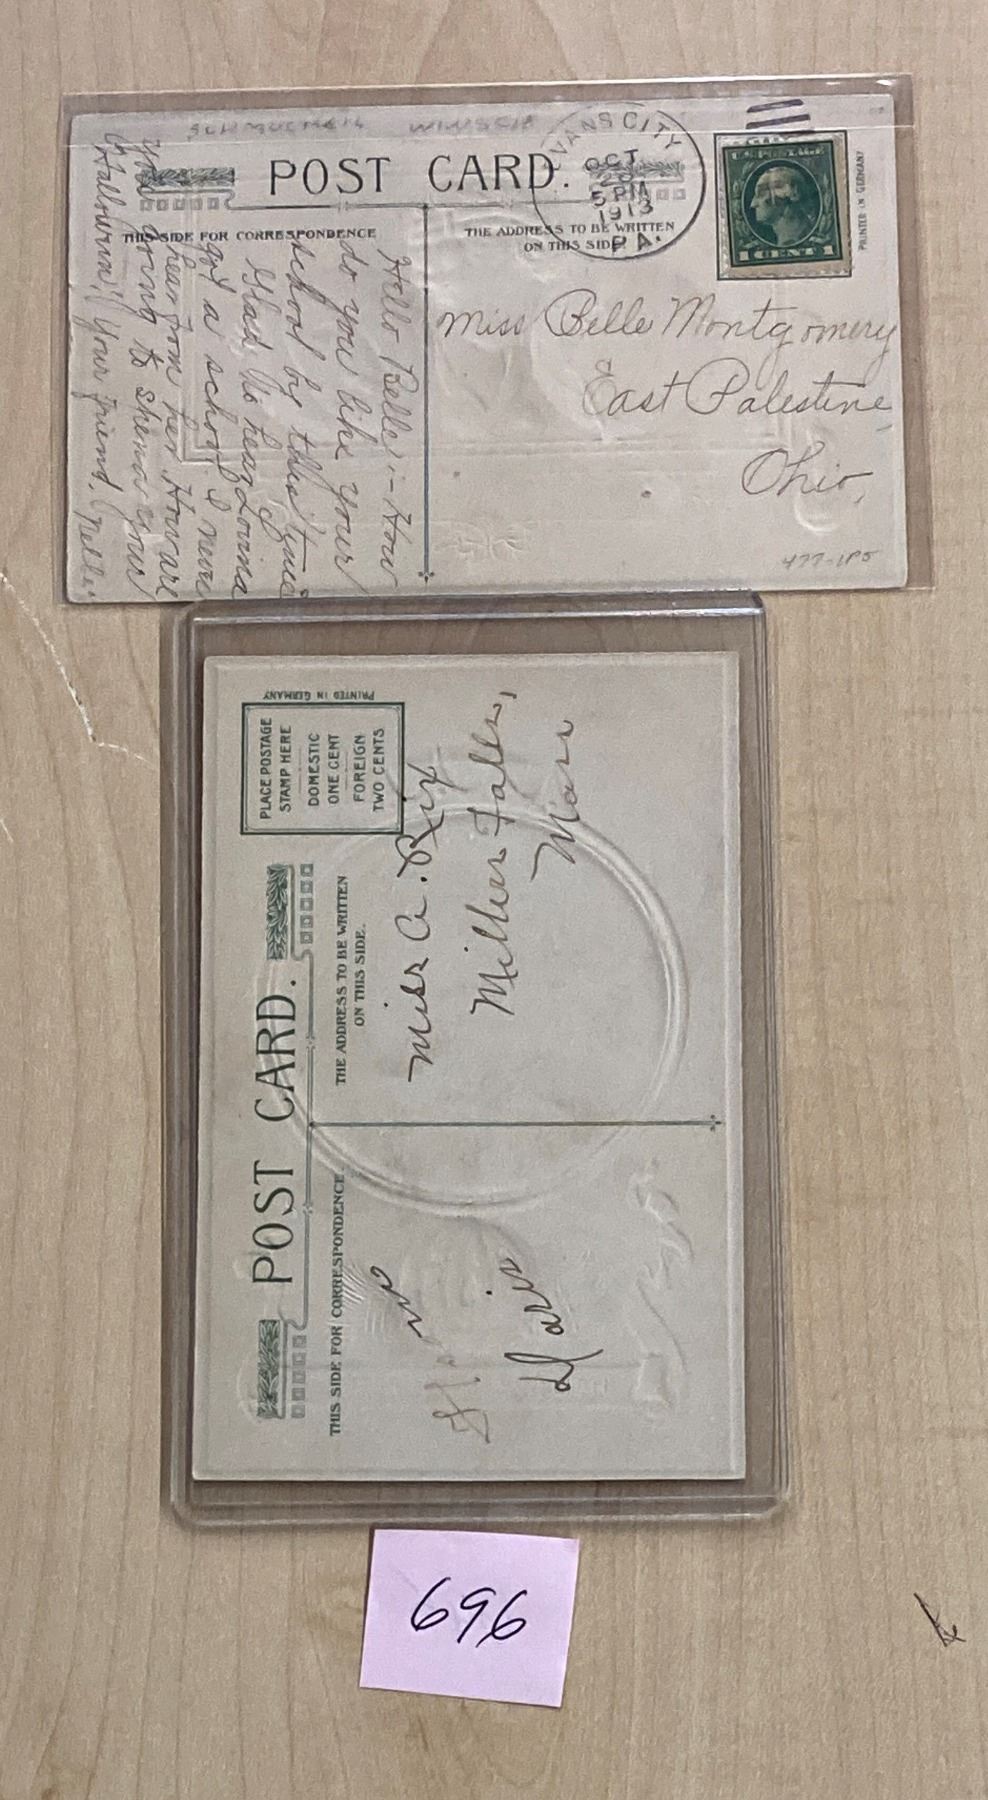 WINSCH
POST CARD.
EVANS CITY
OCT
5 PM
1913
PA.
U.S. POSTAGE
1 CENT 1
PRINTED IN GERMANY
THIS SIDE FOR CORRESPONDENCE
THE ADDRESS TO BE WRITTEN
ON THIS SIDE.
Hello Belle:- How
do you like your
school by this time
Glad to hear Lovina
got a school I never
hear from her. How are
you going to spend your
Hallowe'en? Your friend. Nelle.
Miss Belle Montgomery
East Palestine,
Ohio,
477-1P5
POST CARD.
PLACE POSTAGE
STAMP HERE
DOMESTIC
ONE CENT
FOREIGN
TWO CENTS
PRINTED IN GERMANY
THIS SIDE FOR CORRESPONDENCE.
THE ADDRESS TO BE WRITTEN
ON THIS SIDE.
Miss A. Rix
Millers Falls,
Mass
696